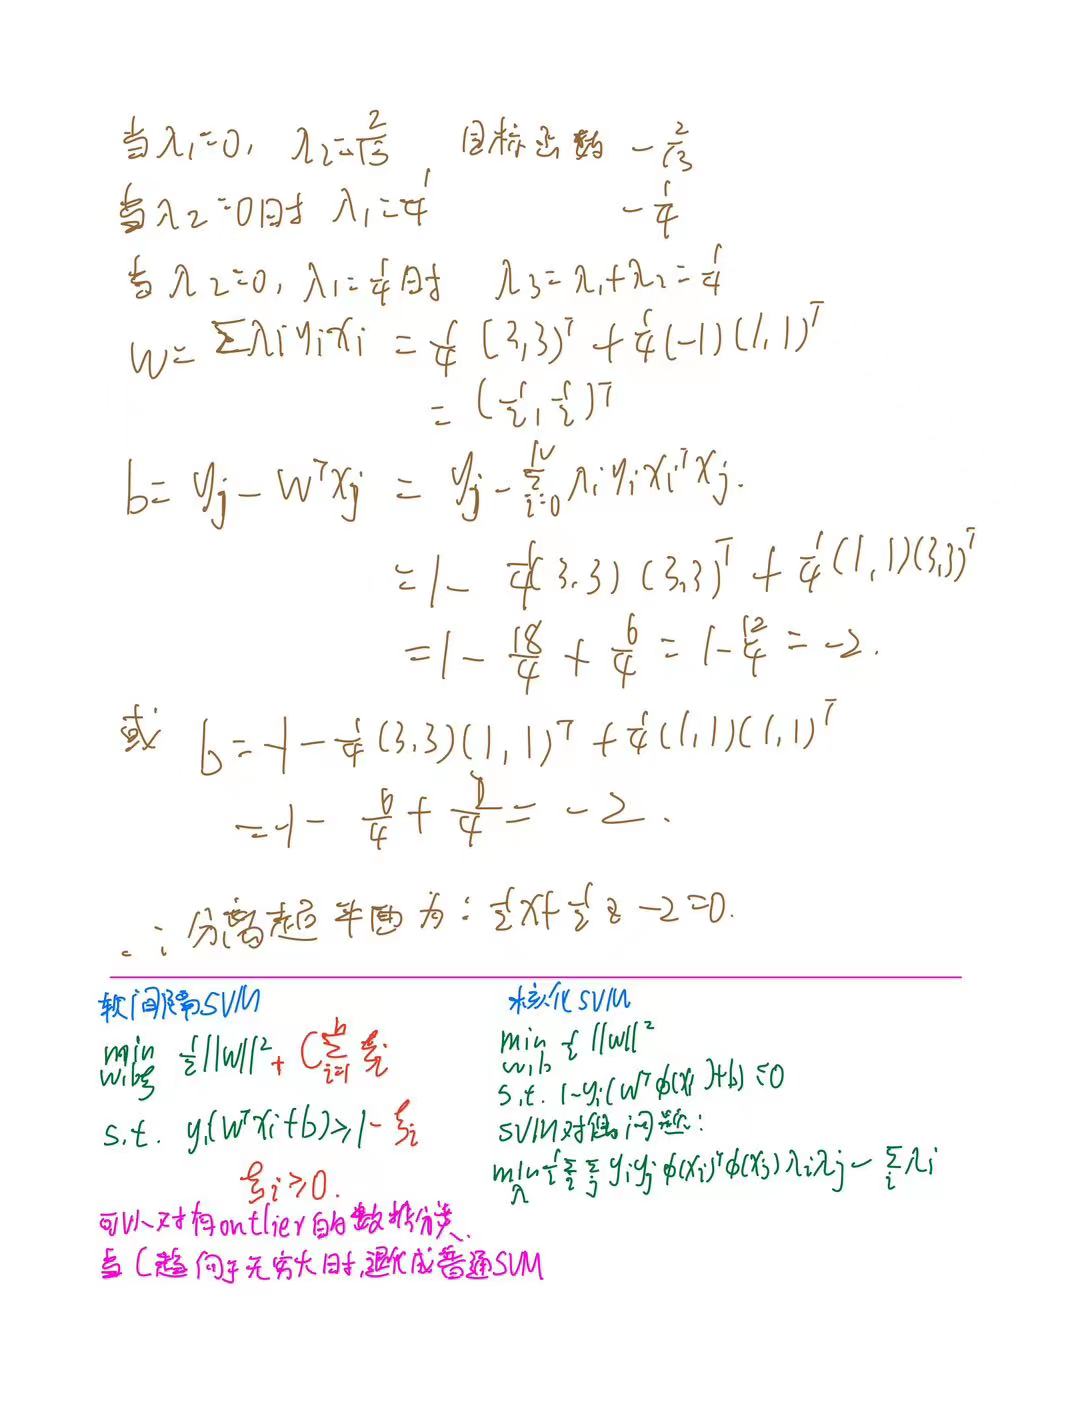 当λ₁=0, λ₂=2/13 目标函数 -2/13
当λ₂=0时 λ₁=1/4 -1/4
当λ₂=0, λ₁=1/4时 λ₃=λ₁+λ₂=1/4
w=Σλᵢyᵢxᵢ = 1/4 (3,3)ᵀ + 1/4(-1)(1,1)ᵀ
= (1/2, 1/2)ᵀ
b= yⱼ - wᵀxⱼ = yⱼ - Σ_{i=0}^{N} λᵢyᵢxᵢᵀxⱼ.
=1 - 1/4(3.3)(3,3)ᵀ + 1/4(1,1)(3,3)ᵀ
=1 - 18/4 + 6/4 = 1-12/4 = -2.
或 b=-1-1/4(3,3)(1,1)ᵀ+1/4(1,1)(1,1)ᵀ
=-1- 6/4 + 2/4 = -2.
∴ 分离超平面为: 1/2x+1/2z-2=0.
软间隔SVM
min w,b,ξ 1/2||w||² + CΣ_{i=1} ξᵢ
s.t. yᵢ(wᵀxᵢ+b)≥1-ξᵢ
ξᵢ≥0.
可以对有outlier的数据分类.
当C趋向于无穷大时,退化成普通SVM
核化SVM
min w,b 1/2||w||²
s.t. 1-yᵢ(wᵀφ(xᵢ)+b)≤0
SVM对偶问题:
min λ 1/2 Σᵢ Σⱼ yᵢyⱼφ(xᵢ)ᵀφ(xⱼ)λᵢλⱼ - Σᵢ λᵢ